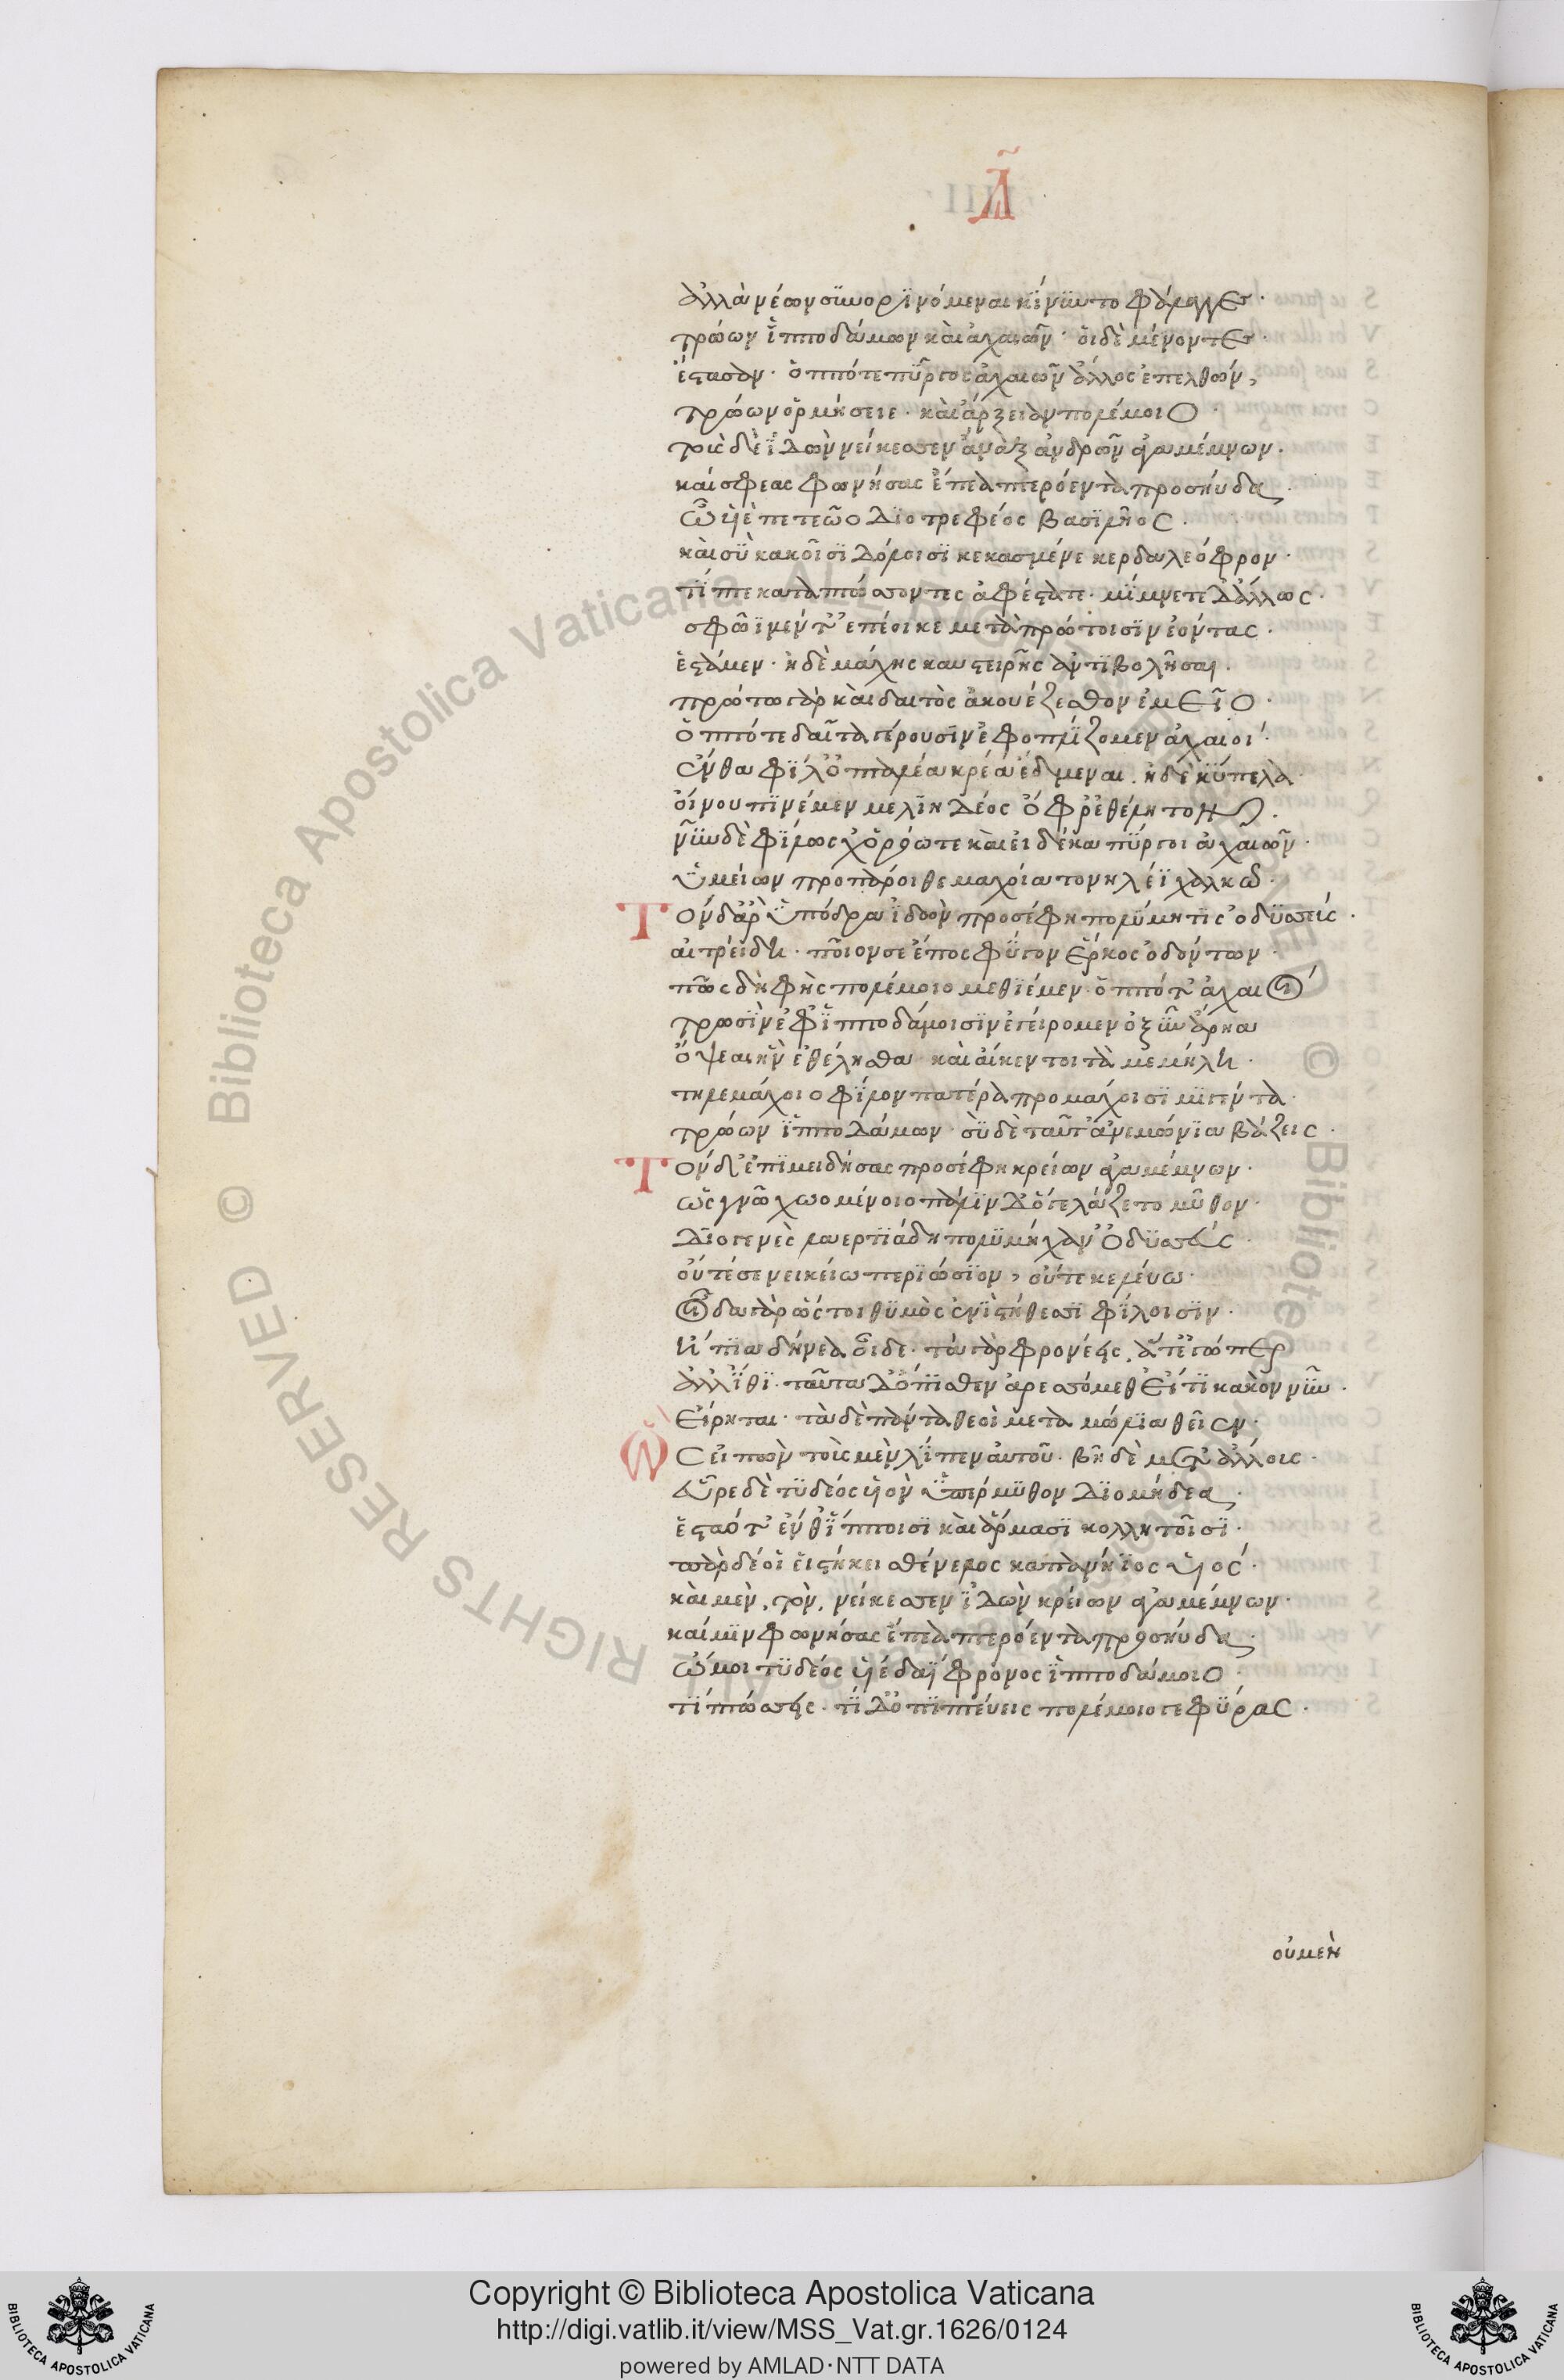 Δ̃
ἀλλὰ νέων συνορϊνόμεναι κΐνϋντο φάλαγγες·
τρώων ἵπποδάμων καὶ ἀχαιῶν· ὅιδε μένοντες·
ἕςασαν· ὅππότε πῦργος ἀχαιῶν ἄλλος ἐπελθών,
τρώων ὅρμήσειε· καὶ ἄρξειαν πολέμοιο·
τοὺς δὲ ἰδὼν νείκεσσεν ἄναξ ἀνδρῶν ἀγαμέμνων·
καί σφεας φωνήσας ἔπεα πτερόεντα προσηύδα·
ὦ ὑιὲ πετεῶο διοτρεφέος βασιλῆος·
καὶ σὺ κακοῖσϊ δόλοισϊ κεκασμένε κερδαλεόφρον·
τίπτε καταπτώσσοντες ἀφέςατε· μίμνετε δ᾽ἄλλους·
σφῶϊν μέν τ᾽ ἐπέοικε μετὰ πρώτοισϊν ἐόντας·
ἑςάμεν· ἠδὲ μάχης καυςειρῆς ἀντιβολῆσαι·
πρώτω γὰρ καὶ δαιτὸς ἀκουάζεσθον ἐμεῖο·
ὅππότε δαῖτα γέρουσϊν ἐφοπλΐζομεν ἀχαιοί·
ἔνθα φΐλ᾽ ὀπταλέα κρέα ἔδμεναι· ἠδὲ κύπελα
ὀίνου πϊνέμεν μελϊηδέος ὄφρ᾽ ἐθέλητον·
νῦν δὲ φΐλως χ᾽ ὁρόωτε καὶ εἰ δέκα πύργοι ἀχαιῶν·
ὑμείων προπάροιθε μαχοίατο νηλέϊ χαλκῶ·
Τὸν δ᾽ἄρ᾽ ὑπόδρα ἰδὼν προσέφη πολύμητις ὀδυσσεύς·
ἀτρείδη· ποῖον σε ἔπος φύγον ἕρκος ὀδόντων·
πῶς δὴ φῂς πολέμοιο μεθϊέμεν· ὅππότ᾽ ἀχαιοί
τρωσὶν ἐφ᾽ ἵπποδάμοισϊν ἐγείρομεν ὀξὺν ἄρηα
ὄψεαι ἢν ἐθέλησθα· καὶ ἄικεν τοι τὰ μεμήλη·
τηλεμάχοιο φΐλον πατέρα προμάχοισϊ μϊγέντα·
τρώων ἵπποδάμων· σὺ δὲ ταῦτ᾽ ἀνεμώνϊα βάζεις·
Τὸν δ᾽ ἐπϊμειδήσας προσέφη κρείων ἀγαμέμνων·
ὡς γνῶ χωομένοιο πάλϊν δ᾽ὅγε λάζετο μῦθον·
Διογενὲς λαερτϊάδη πολυμήχαν᾽ ὀδυσσεύς·
οὔτέ σε νεικείω περϊώσϊον, οὔτε κελέυω·
οἶδα γὰρ ὥς τοι θϋμὸς ἐνὶ ςήθεσσϊ φΐλοισϊν·
ἤπϊα δήνεα οἶδε· τὰ γὰρ φρονέεις, ἅτ᾽ ἐγώ περ
ἀλλ᾽ ἴθϊ· ταῦτα δ᾽ ὄπϊσθεν ἀρεσσόμεθ᾽ εἴ τϊ κακὸν νῦν·
εἴρηται· τὰ δὲ πάντα θεοὶ μεταμώλϊα θεῖεν·
Ὣς εἰπὼν τοὺς μὲν λΐπεν ἀυτοῦ· βῆ δὲ μετ᾽ ἄλλους·
εὗρε δὲ τϋδέος ὑιὸν ὑπέρμϋθον Διομήδεα·
ἕςαότ᾽ ἔν θ᾽ ἵπποισϊ καὶ ἅρμασϊ κολλητοῖσϊ·
πὰρ δέ οἱ εἱςήκει σθένελος καπανήϊος ὑιός·
καὶ μὲν, τὸν, νείκεσσεν ἰδὼν κρείων ἀγαμέμνων·
καί μϊν φωνήσας ἔπεα πτερόεντα προσηύδα·
ὤμοι τϋδέος ὑιὲ δαΐφρονος ἵπποδάμοιο·
τί πτώσσεις· τί δ᾽ ὀπϊπτέυεις πολέμοιο γεφύρας·
οὐ μὲν
Copyright © Biblioteca Apostolica Vaticana
http://digi.vatlib.it/view/MSS_Vat.gr.1626/0124
powered by AMLAD·NTT DATA